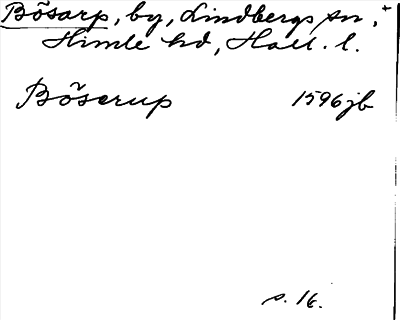 Bösarp, by, Lindbergs sn, +
Himle hd, Hall. l.
Böserup 1596 jb
s. 16.